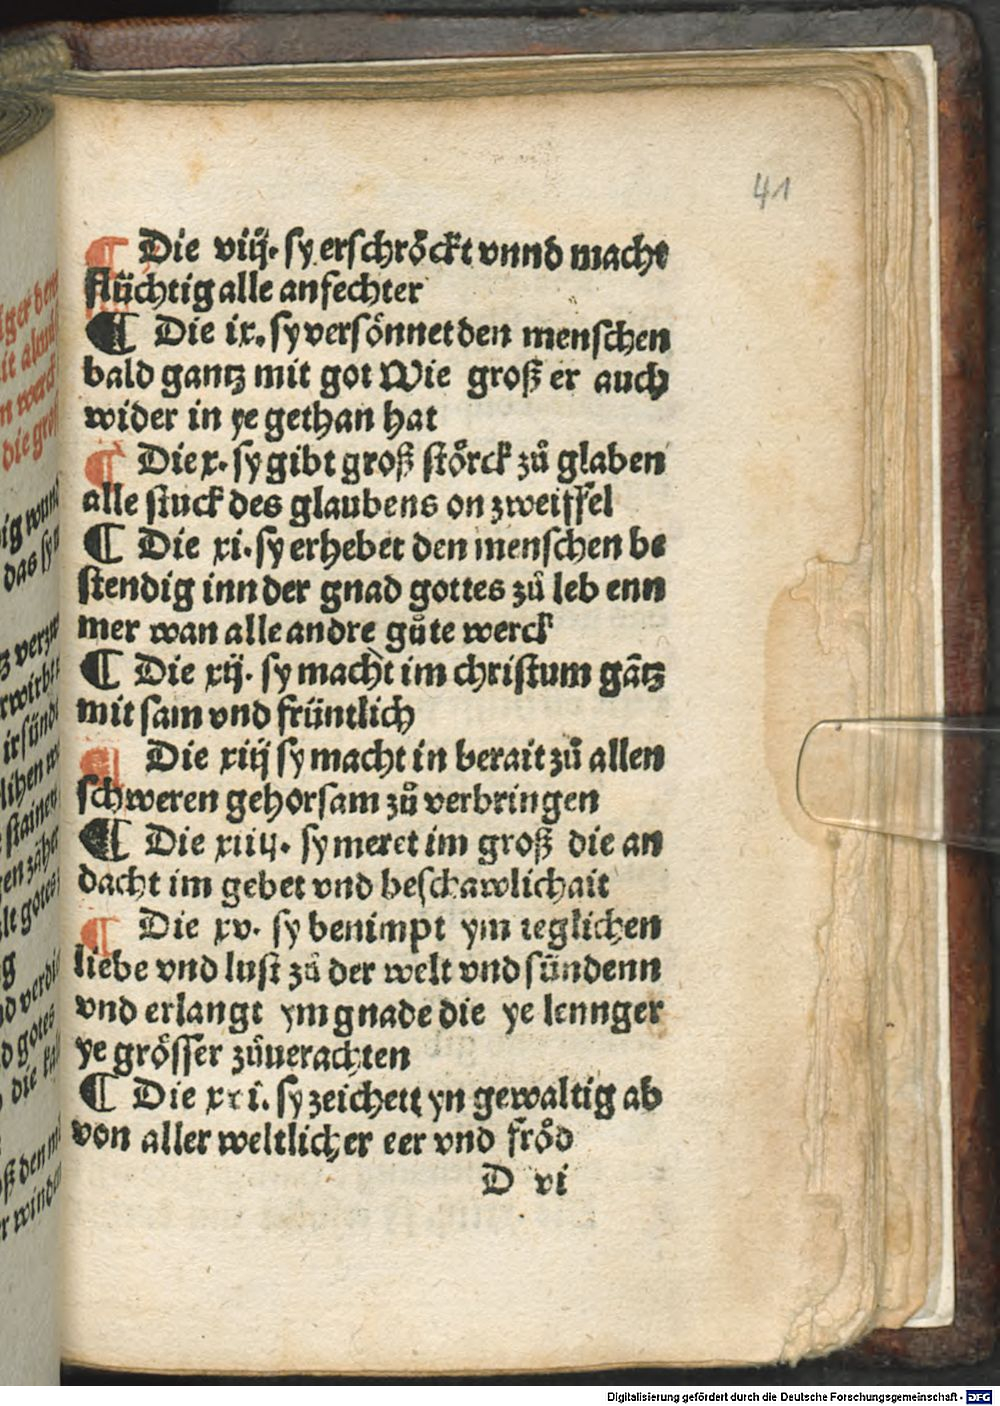 41
¶ Die viij. sy erschröckt vnnd macht
flüchtig alle anfechter
¶ Die ix. sy versönnet den menschen
bald gantz mit got Wie groß er auch
wider in ye gethan hat
¶ Die x. sy gibt groß störck zů glaben
alle stuck des glaubens on zweiffel
¶ Die xi. sy erhebet den menschen be
stendig inn der gnad gottes zů leb enn
mer wan alle andre gůte werck
¶ Die xij. sy macht im christum gātz
mit sam vnd früntlich
¶ Die xiij sy macht in berait zů allen
schweren gehorsam zů verbringen
¶ Die xiiij. sy meret im groß die an
dacht im gebet vnd beschawlichait
¶ Die xv. sy benimpt ym ieglichen
liebe vnd lust zů der welt vnd sündenn
vnd erlangt ym gnade die ye lennger
ye grösser zůuerachten
¶ Die xvi. sy zeichett yn gewaltig ab
von aller weltlicher eer vnd fröd
D vi
Digitalisierung gefördert durch die Deutsche Forschungsgemeinschaft - DFG